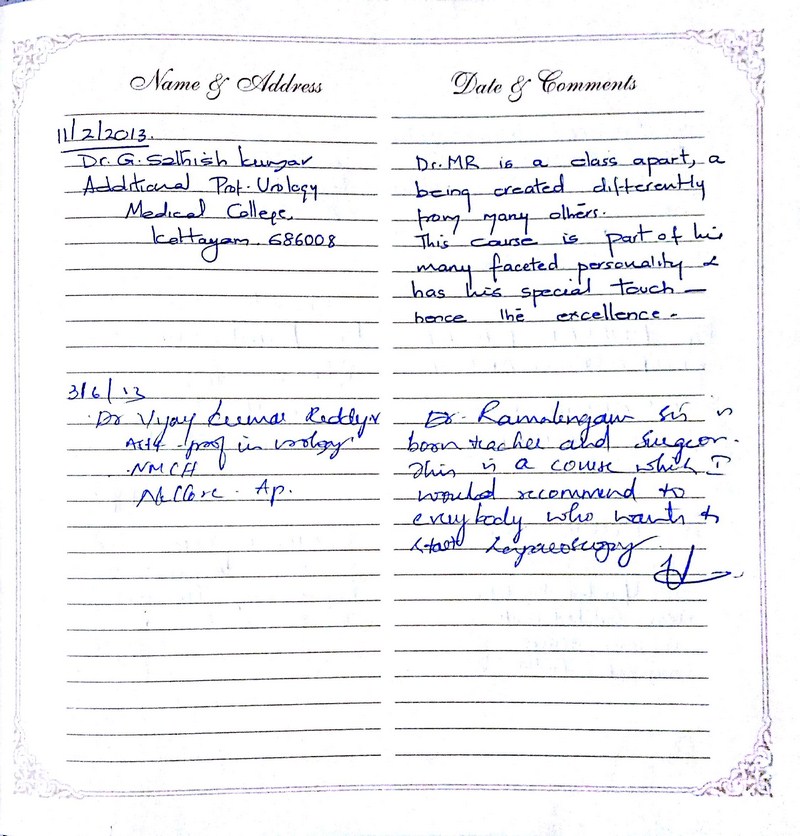 Name & Address
11/2/2013.
Dr. G. Sathish kumar
Additional Prof. Urology
Medical College,
Kottayam 686008
3/6/13
Dr Vijay Kumar Reddy
Asst - prof in urology
NMCH
Nellore. Ap.
Date & Comments
Dr. MR is a class apart, a
being created differently
from many others.
This course is part of his
many faceted personality &
has his special touch —
hence the excellence.
Dr. Ramalengam Sir is
born teacher and Surgeon.
This is a course which I
would recommend to
everybody who wants to
start Laparoscopy.